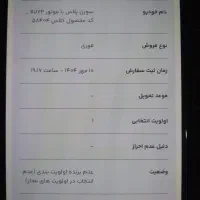 نام خودرو
سورن پلاس با موتور XU7P
کد محصول ایکس ۵۸۴۰۴
نوع فروش
فوری
زمان ثبت سفارش
۱۰ مهر ۱۴۰۴ - ساعت ۱۹:۰۷
موعد تحویل
-
اولویت انتخابی
۱
دلیل عدم احراز
-
وضعیت
عدم برنده اولویت بندی (عدم
انتخاب در اولویت های مجاز)